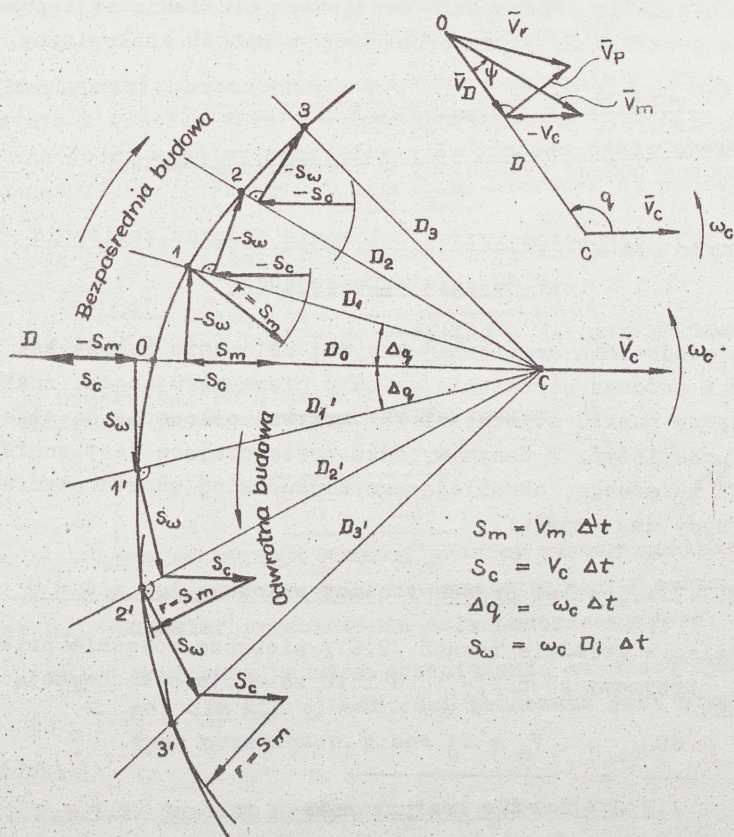 O
V̄r
V̄p
V̄D
ψ
V̄m
-Vc
D
q
V̄c
C
ωc
Bezpośrednia budowa
3
2
-Sω
-Sc
D3
D2
1
-Sω
-Sc
r = Sm
D1
-Sω
D
-Sm
O
Sm
D0
Δq
C
V̄c
ωc
Sc
-Sc
Δq
Sω
D1'
1'
D2'
Odwrotna budowa
D3'
Sω
Sc
r = Sm
2'
Sω
Sc
3'
r = Sm
Sm = Vm Δt
Sc = Vc Δt
Δq = ωc Δt
Sω = ωc Di Δt